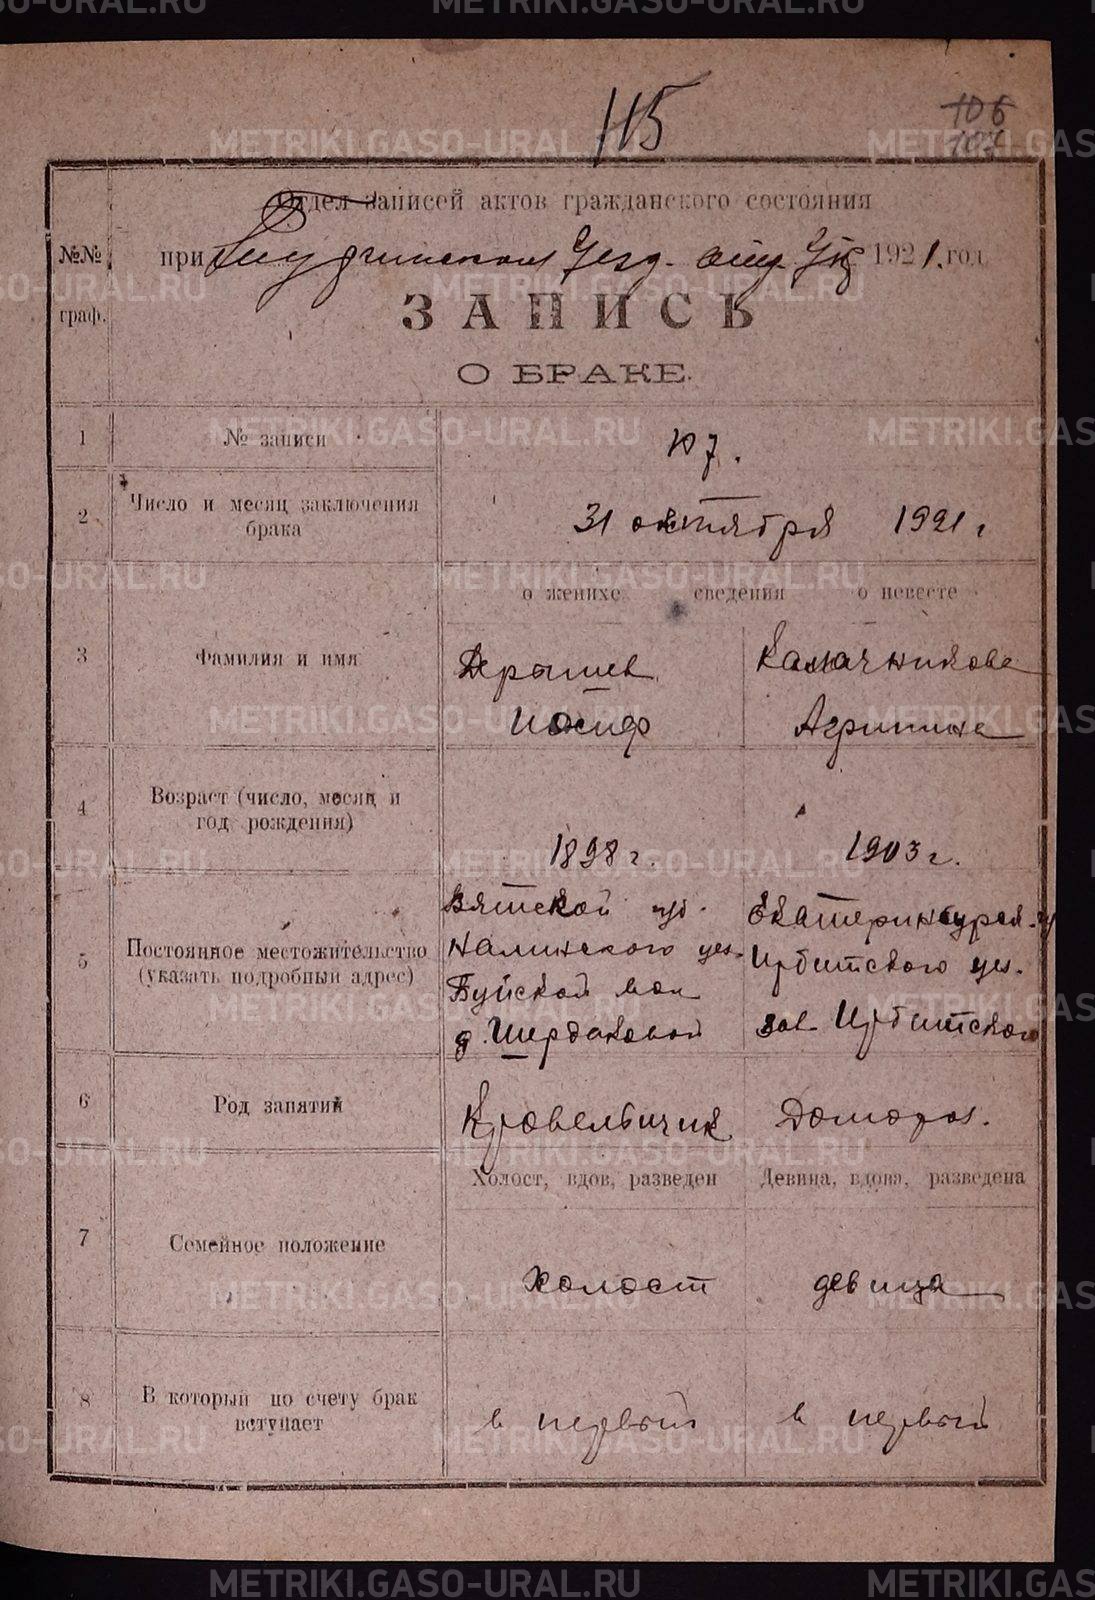 115
106
107
№№ граф.
Отдел записей актов гражданского состояния
при Уезд. отд. Упр 1921. год
ЗАПИСЬ
О БРАКЕ.
1 № записи 107.
2 Число и месяц заключения брака 31 октября 1921 г
о женихе сведения о невесте
3 Фамилия и имя
Дерышев Калачникова
Иосиф Агрипина
4 Возраст (число, месяц и год рождения)
1898 г. 1903 г.
5 Постоянное местожительство (указать подробный адрес)
Вятской губ. Екатеринбургск. г
Малмжского уез. Ирбитского уез.
Буйской вол зав Ирбитского
д. Шердаковой
6 Род занятий Кровельщик Домохоз.
Холост, вдов, разведен Девица, вдова, разведена
7 Семейное положение
холост девица
8 В который по счету брак вступает
в первый в первый
METRIKI.GASO-URAL.RU